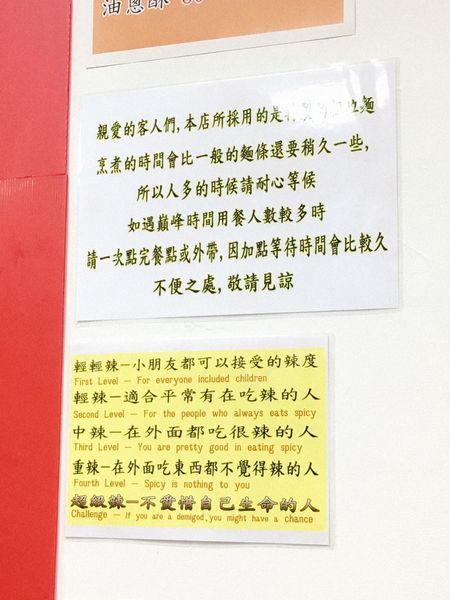 油蔥酥
親愛的客人們,本店所採用的是 麵
烹煮的時間會比一般的麵條還要稍久一些,
所以人多的時候請耐心等候
如遇巔峰時間用餐人數較多時
請一次點完餐點或外帶,因加點等待時間會比較久
不便之處,敬請見諒
輕輕辣—小朋友都可以接受的辣度
First Level — For everyone included children
輕辣—適合平常有在吃辣的人
Second Level — For the people who always eats spicy
中辣—在外面都吃很辣的人
Third Level — You are pretty good in eating spicy
重辣—在外面吃東西都不覺得辣的人
Fourth Level — Spicy is nothing to you
超級辣—不愛惜自己生命的人
Challenge — If you are a demigod,you might have a chance